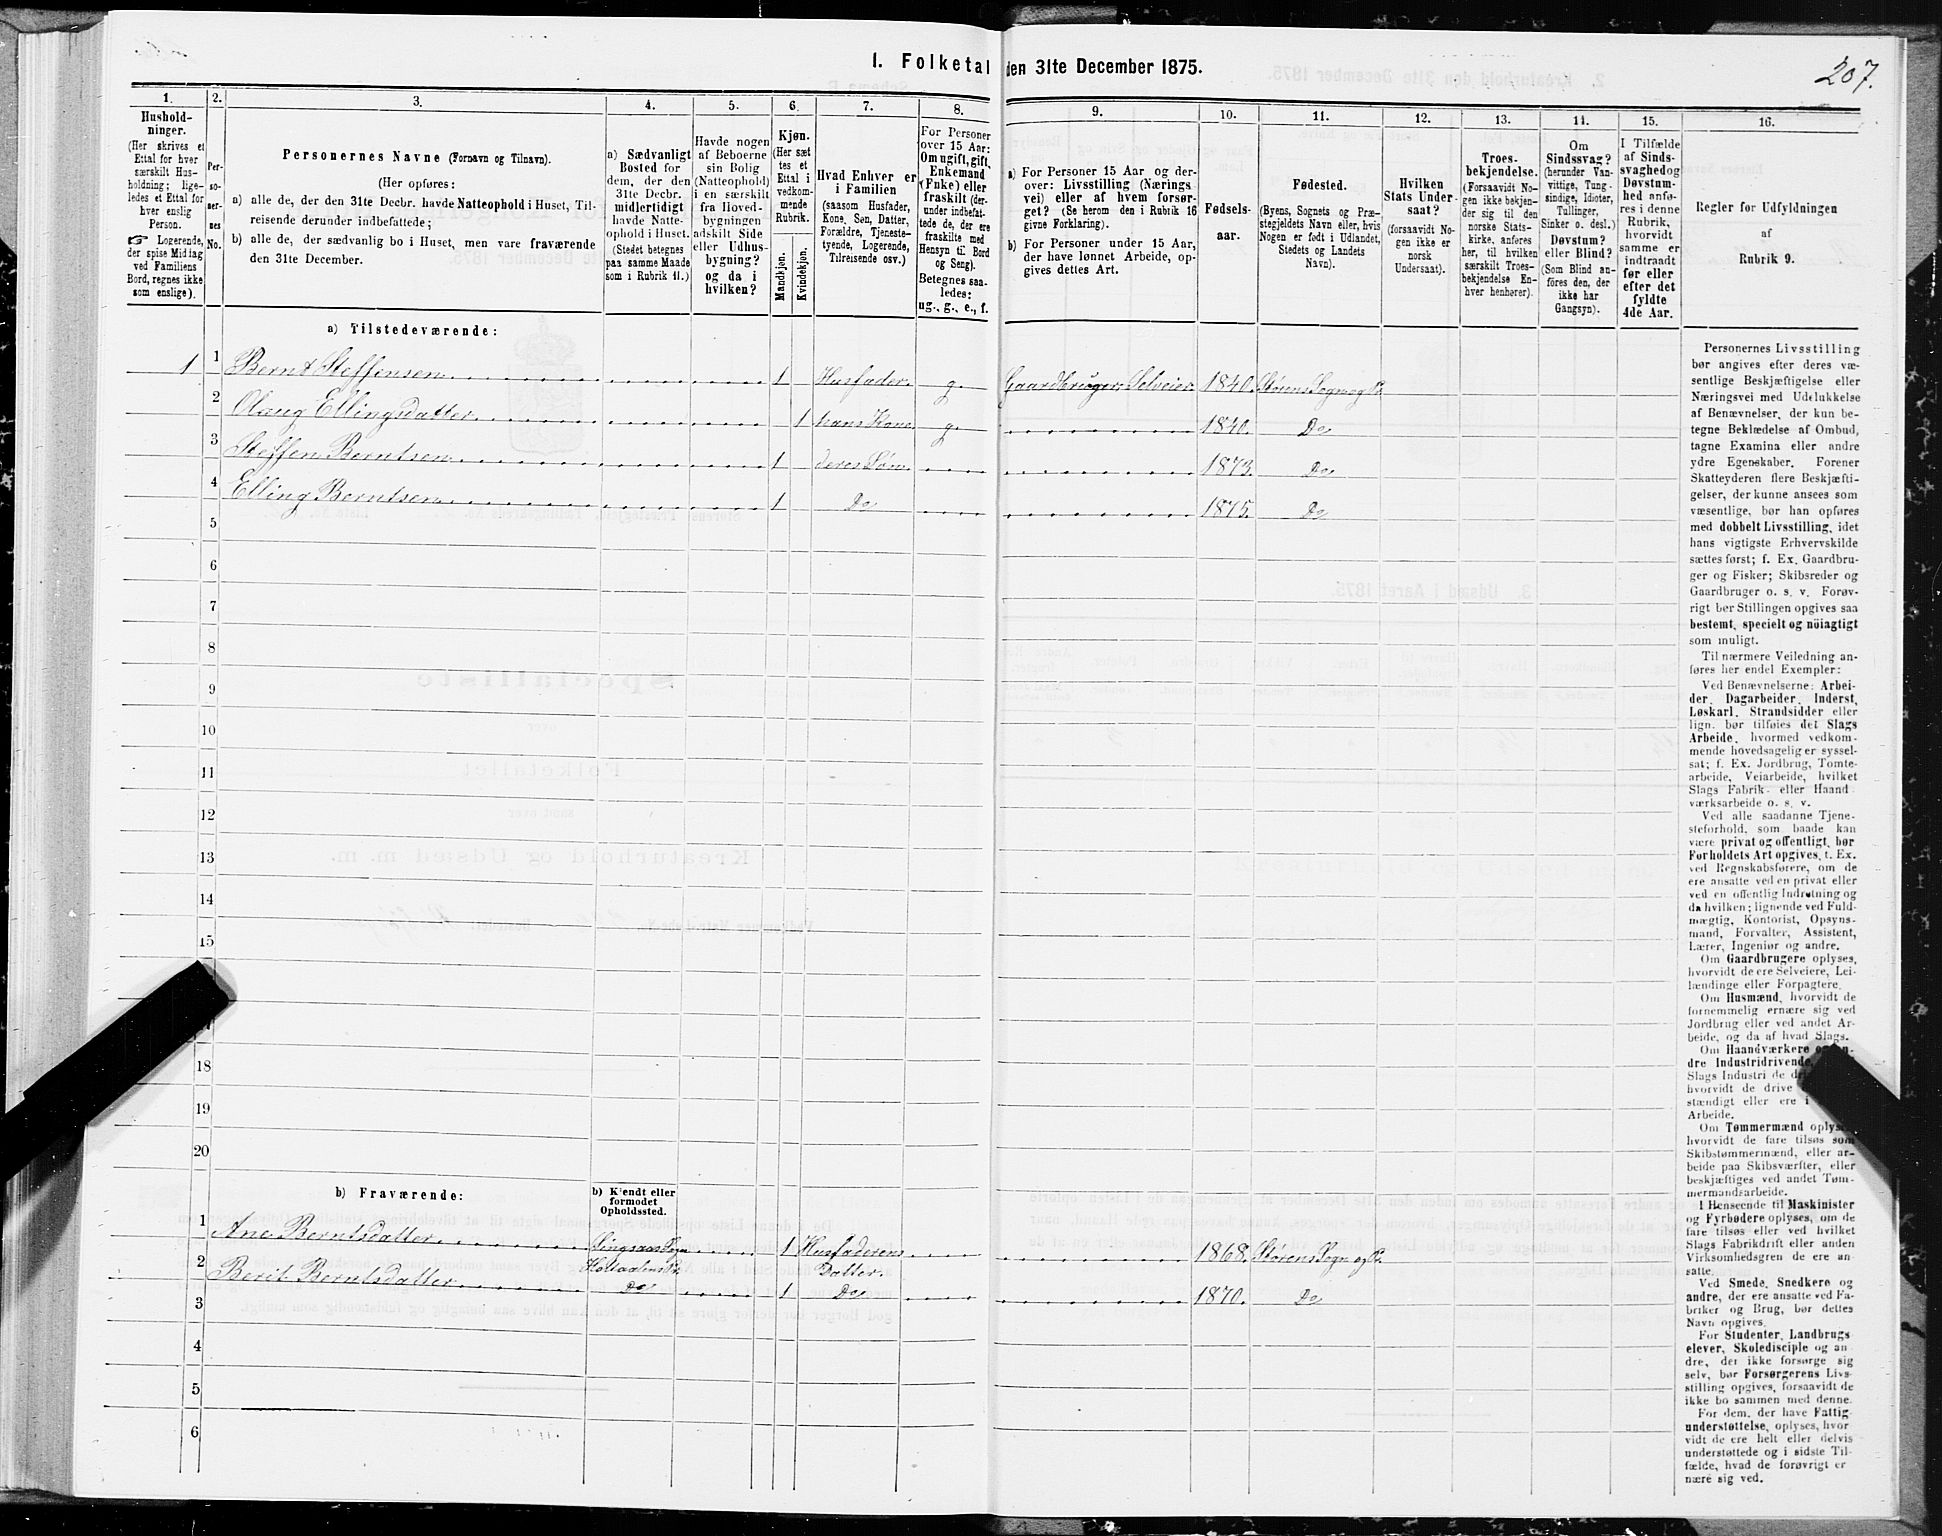 I. Folketal den 31te December 1875.
207.
1.
Hushold-
ninger.
(Her skrives et
Ettal for hver
særskilt Hus-
holdning; lige-
ledes et Ettal for
hver enslig
Person.
☞ Logerende,
der spise Middag
ved Familiens
Bord, regnes ikke
som enslige).
2.
Per-
so-
ner-
nes
No.
3.
Personernes Navne (Fornavn og Tilnavn).
(Her opføres:
a) alle de, der den 31te Decbr. havde Natteophold i Huset, Til-
reisende derunder indbefattede;
b) alle de, der sædvanlig bo i Huset, men vare fraværende
den 31te December.
4.
a) Sædvanligt
Bosted for
dem, der den
31te Decbr.
midlertidigt
havde Natte-
ophold i Huset.
(Stedet betegnes
paa samme Maade
som i Rubrik 11.)
5.
Havde nogen
af Beboerne
sin Bolig
(Natteophold)
i en særskilt
fra Hoved-
bygningen
adskilt Side
eller Udhus-
bygning?
og da i
hvilken?
6.
Kjøn.
(Her sæt
tes et
Ettal i
vedkom-
mende
Rubrik.
Mandkjøn.
Kvindekjøn.
7.
Hvad Enhver er
i Familien
(saasom Husfader,
Kone, Søn, Datter,
Forældre, Tjeneste-
tyende, Logerende,
Tilreisende osv.)
8.
For Personer
over 15 Aar:
Om ugift, gift,
Enkemand
(Enke) eller
fraskilt (der-
under indbefat-
tede de, der ere
fraskilte med
Hensyn til Bord
og Seng).
Betegnes saa-
ledes:
ug., g., e., f.
9.
a) For Personer 15 Aar og der-
over: Livsstilling (Nærings
vei) eller af hvem forsør-
get? (Se herom den i Rubrik 16
givne Forklaring).
b) For Personer under 15 Aar,
der have lønnet Arbeide, op-
gives dettes Art.
10.
Fødsels-
aar.
11.
Fødested.
(Byens, Sognets og Præ-
stegjeldets Navn eller, hvis
Nogen er født i Udlandet,
Stedets og Landets
Navn).
12.
Hvilken
Stats Under-
saat?
(forsaavidt No-
gen ikke er
norsk
Undersaat).
13.
Troes-
bekjendelse.
(Forsaavidt No-
gen ikke bekjen-
der sig til den
norske Stats-
kirke, anføres
her, til hvilken
særskilt Troes-
bekjendelse En-
hver henhører).
14.
Om
Sindssvag?
(herunder Van-
vittige, Tung-
sindige, Idioter,
Tullinger,
Sinker o. desl.)
Døvstum?
eller Blind?
(Som Blind an-
føres den, der
ikke har
Gangsyn).
15.
I Tilfælde
af Sinds-
svaghed og
Døvstum-
hed anfø-
res i denne
Rubrik,
hvorvidt
samme er
indtraadt
før eller
efter det
fyldte
4de Aar.
16.
Regler for Udfyldningen
af
Rubrik 9.
a) Tilstedeværende:
1 1 Bernt Steffensen 1 Husfader g. Gaardbruger, Selveier 1840. Størens Sogn og Pr.
2 Olaug Ellingsdatter 1 hans Kone g. 1840. Do
3 Steffen Berntsen 1 deres Søn 1873. Do
4 Elling Berntsen 1 Do 1875. Do
5
6
7
8
9
10
11
12
13
14
15
18
19
20
b) Fraværende:
b) Kjendt eller
formodet
Opholdssted.
1 Ane Berntsdatter Singsaas Sogn 1 Husfaderens 1868. Størens Sogn og Pr.
Holtaalens Pr. Datter.
2 Berit Berntsdatter Do 1 Do 1870. Do
3
4
5
6
Personernes Livsstilling
bør angives efter deres væ-
sentlige Beskjæftigelse eller
Næringsvei med Udelukkelse
af Benævnelser, der kun be-
tegne Beklædelse af Ombud,
tagne Examina eller andre
ydre Egenskaber. Forener
Skatteyderen flere Beskjæfti-
gelser, der kunne ansees som
væsentlige, bør han opføres
med dobbelt Livsstilling, idet
hans vigtigste Erhvervskilde
sættes først; f. Ex. Gaardbru-
ger og Fisker; Skibsreder og
Gaardbruger o. s. v. Forøv-
rigt bør Stillingen opgives saa
bestemt, specielt og nøiagtigt
som muligt.
Til nærmere Veiledning an-
føres her endel Exempler:
Ved Benævnelserne: Arbei-
der, Dagarbeider, Inderst,
Løskarl, Strandsidder eller
lign. bør tilføies det Slags
Arbeide, hvormed vedkom-
mende hovedsagelig er syssel-
sat; f. Ex. Jordbrug, Tomte-
arbeide, Veiarbeide, hvilket
Slags Fabrik- eller Haand
værksarbeide o. s. v.
Ved alle saadanne Tjene-
steforhold, som baade kan
være privat og offentligt, bør
Forholdets Art opgives, t. Ex.
ved Regnskabsførere, om de
ere ansatte ved en privat eller
ved en offentlig Indretning og
da hvilken; lignende ved Fuld-
mægtig, Kontorist, Opsyns-
mand, Forvalter, Assistent,
Lærer, Ingeniør og andre.
Om Gaardbrugere oplyses,
hvorvidt de ere Selveiere, Lei-
lændinge eller Forpagtere.
Om Husmænd, hvorvidt de
fornemmelig ernære sig ved
Jordbrug eller ved andet Ar-
beide, og da af hvad Slags.
Om Haandværkere
dre Industridrivende
Slags Industri de
hvorvidt de drive
stændigt eller ere i
Arbeide.
Om Tømmermænd oplyses
hvorvidt de fare tilsøs som
Skibstømmermænd, eller ar-
beide paa Skibsværfter, eller
beskjæftiges ved andet Tøm-
mermandsarbeide.
I Henseende til Maskinister
og Fyrbødere oplyses, om de
fare tilsøs eller ved hvilket
Slags Fabrikdrift eller anden
Virksomhedsgren de ere an-
satte.
Ved Smede, Snedkere og
andre, der ere ansatte ved Fa-
briker og Brug, bør dettes
Navn opgives.
For Studenter, Landbrugs
elever, Skoledisciple og an
dre, der ikke forsørge sig
selv, bør Forsørgerens Livs-
stilling opgives, forsaavidt de
ikke bo sammen med denne.
For dem, der have Fattig-
understøttelse, oplyses, hvor-
vidt de ere helt eller delvis
understøttede og i sidste Til-
fælde, hvad de forøvrigt er
nære sig ved.